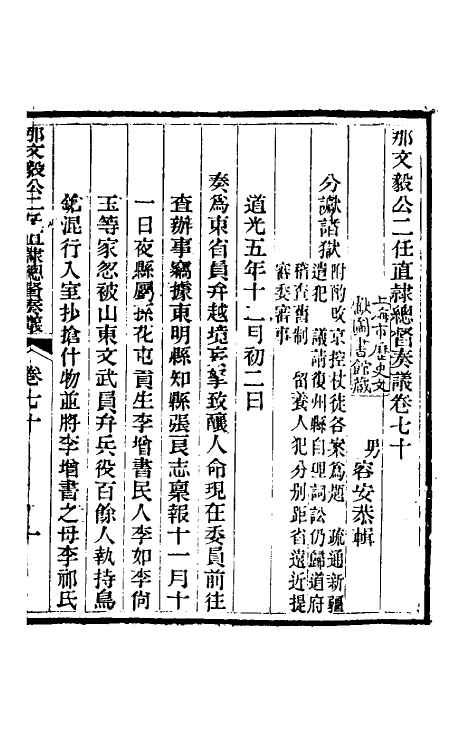 那文毅公二任直隸總督奏議卷七十
上海市歷史文
獻圖書館藏
男容安恭輯
分讞諸獄
附酌改京控杖徒各案為題　疏通新疆
遣犯　議請復州縣自理詞訟仍歸道府
稽查舊制　留養人犯分別距省遠近提
審委審事
道光五年十二月初二日
奏為東省員弁越境妄拏致釀人命現在委員前往
查辦事竊據東明縣知縣張良志稟報十一月十
一日夜縣屬探花屯貢生李增書民人李如李尚
玉等家忽被山東文武員弁兵役百餘人執持鳥
鎗混行入室抄搶什物並將李增書之母李祁氏
那文毅公二任直隸總督奏議
卷七十
一